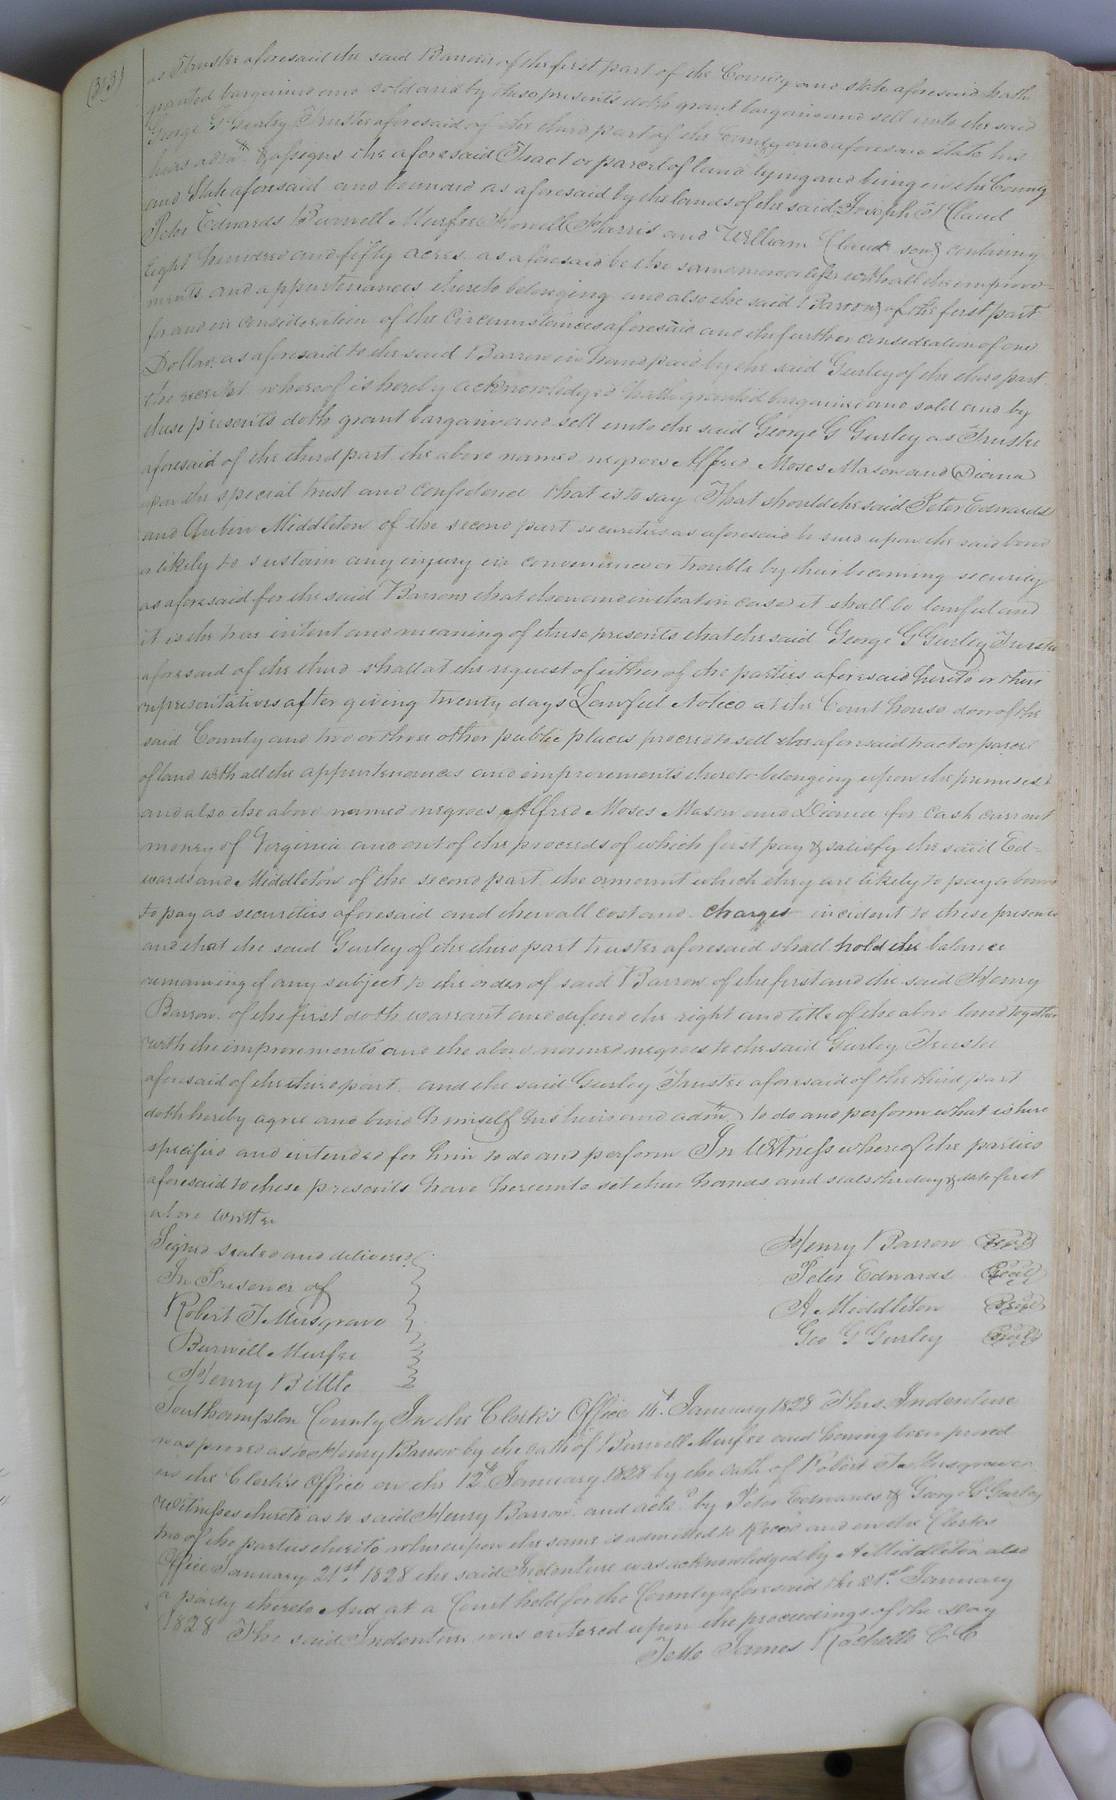 (313)
as Trustee aforesaid the said Barrow of the first part of the County and state aforesaid hath
granted bargained and sold and by these presents doth grant bargain and sell unto the said
George G Gurley Trustee aforesaid of the third part of the County and aforesaid state his
heirs adm.rs & assigns the aforesaid Tract or parcel of land lying and being in the County
and State aforesaid and bounded as aforesaid by the lands of the said Joseph T Claud
Peter Edwards Burwell Murfee Howell Harris and William Claud sen.r containing
Eight hundred and fifty acres as aforesaid be the same more or less with all the improve-
ments and appurtenances thereto belonging and also the said Barrow of the first part
for and in consideration of the Circumstances aforesaid and the further consideration of one
Dollar as aforesaid to the said Barrow in hand paid by the said Gurley of the third part
the receipt whereof is hereby acknowledged hath granted bargained and sold and by
these presents doth grant bargain and sell unto the said George G Gurley as Trustee
aforesaid of the third part the above named negroes Alfred Moses Mason and Diana
upon the special trust and confidence that is to say That should the said Peter Edwards
and Middleton of the second part securities as aforesaid be sued upon the said bond
or likely to sustain any injury in convenience or trouble by their becoming security
as aforesaid for the said Barrow that then and in that in case it shall be lawful and
it is the true intent and meaning of these presents that the said George G Gurley Trustee
aforesaid of the third shall at the request of either of the parties aforesaid hereto or their
representatives after giving twenty days Lawful Notice at the Court house door of the
said County and two or three other public places proceed to sell the aforesaid tract or parcel
of land with all the appurtenances and improvements thereto belonging upon the premises
and also the above named negroes Alfred Moses Mason and Diana for cash currant
money of Virginia and out of the proceeds of which first pay & satisfy the said Ed-
wards and Middleton of the second part the ammount which they are likely to pay or bound
to pay as securities aforesaid and then all cost and charges incident to these presents
and that the said Gurley of the third part trustee aforesaid shall hold the balance
remaining if any subject to the order of said Barrow of the first and the said Henry
Barrow of the first doth warrant and defend the right and title of the above land together
with the improvements and the above named negroes to the said Gurley Trustee
aforesaid of the third part and the said Gurley Trustee aforesaid of the third part
doth hereby agree and bind himself his heirs and adm.rs to do and perform what is here
specified and intended for him to do and perform In Witness whereof the parties
aforesaid to these presents have hereunto set their hands and seals the day & date first
above written
Signed sealed and delivered
In Presence of
Robert T Musgrave
Burwell Murfee
Henry Bittle
Henry Barrow Seal
Peter Edwards Seal
A Middleton Seal
Geo G Gurley Seal
Southampton County In the Clerk's Office 14th January 1828 This Indenture
was proved as to Henry Barrow by the oath of Burwell Murfee and having been proved
in the Clerk's Office on the 12th January 1828 by the oath of Robert T Musgrave
witnesses thereto as to said Henry Barrow and ack.d by Peter Edwards & George G Gurley
two of the parties thereto whereupon the same is admitted to Record and in the Clerks
Office January 21st 1828 the said Indenture was acknowledged by A Middleton also
a party thereto And at a Court held for the County aforesaid the 21st January
1828 The said Indenture was entered upon the proceedings of the day
Teste James Rochelle C C